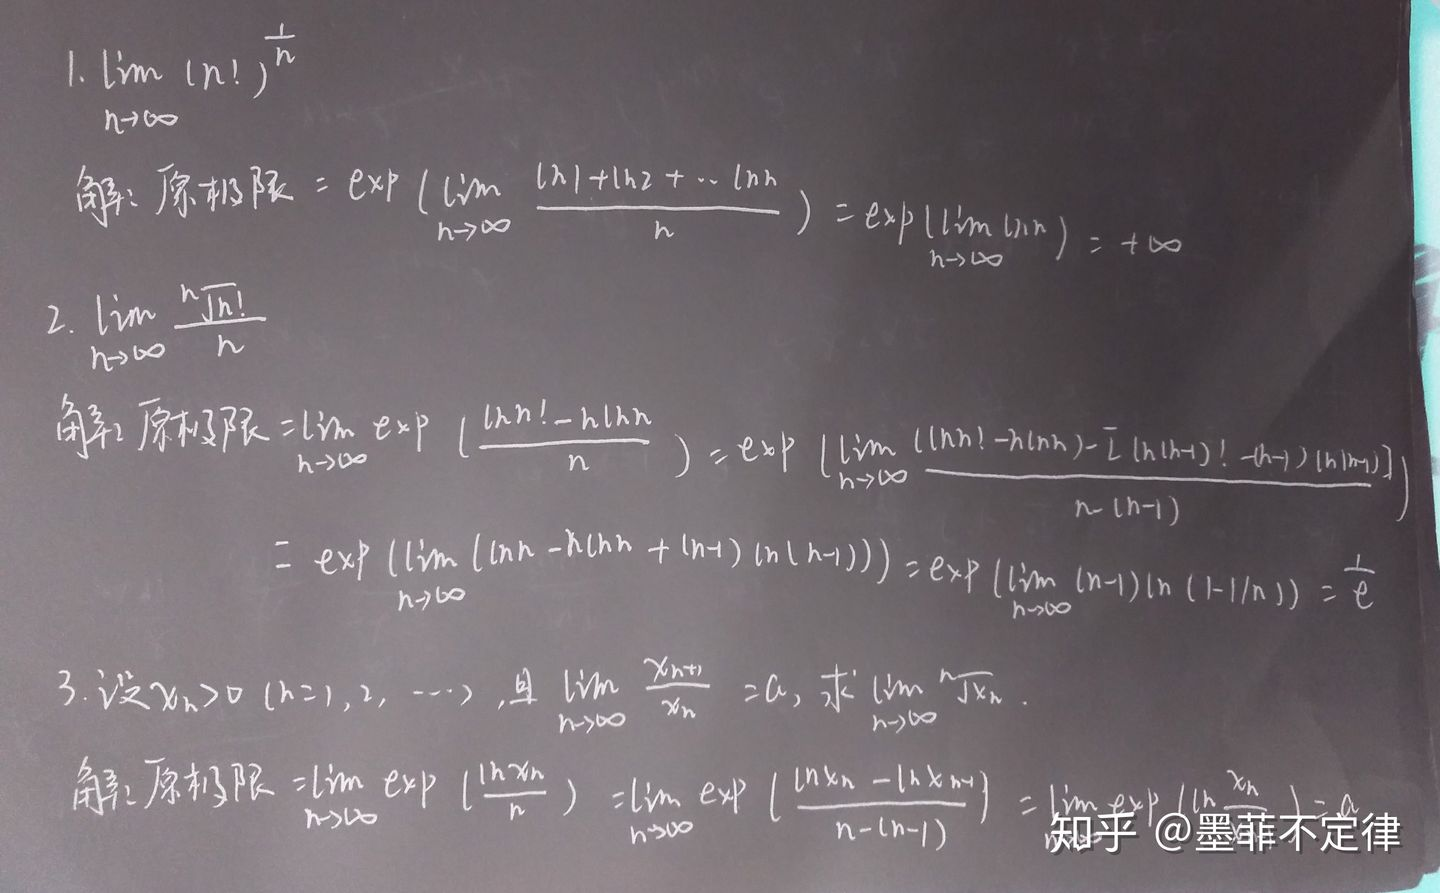 1. lim (n!)^{1/n}
n→∞
解: 原极限 = exp ( lim_{n→∞} \frac{ln1+ln2+…lnn}{n} ) = exp( lim_{n→∞} lnn ) = +∞
2. lim_{n→∞} \frac{\sqrt[n]{n!}}{n}
解: 原极限 = lim_{n→∞} exp ( \frac{lnn!-nlnn}{n} ) = exp ( lim_{n→∞} \frac{(lnn!-nlnn)-[ln(n-1)!-(n-1)ln(n-1)]}{n-(n-1)} )
= exp( lim_{n→∞} (lnn-nlnn+(n-1)ln(n-1))) = exp( lim_{n→∞} (n-1)ln(1-1/n)) = \frac{1}{e}
3. 设x_n>0 (n=1,2,…), 且 lim_{n→∞} \frac{x_{n+1}}{x_n} = a, 求 lim_{n→∞} \sqrt[n]{x_n}.
解: 原极限 = lim_{n→∞} exp ( \frac{lnx_n}{n} ) = lim_{n→∞} exp ( \frac{lnx_n-lnx_{n-1}}{n-(n-1)} ) = lim exp (ln \frac{x_n}{x} ) = a
知乎 @墨菲不定律